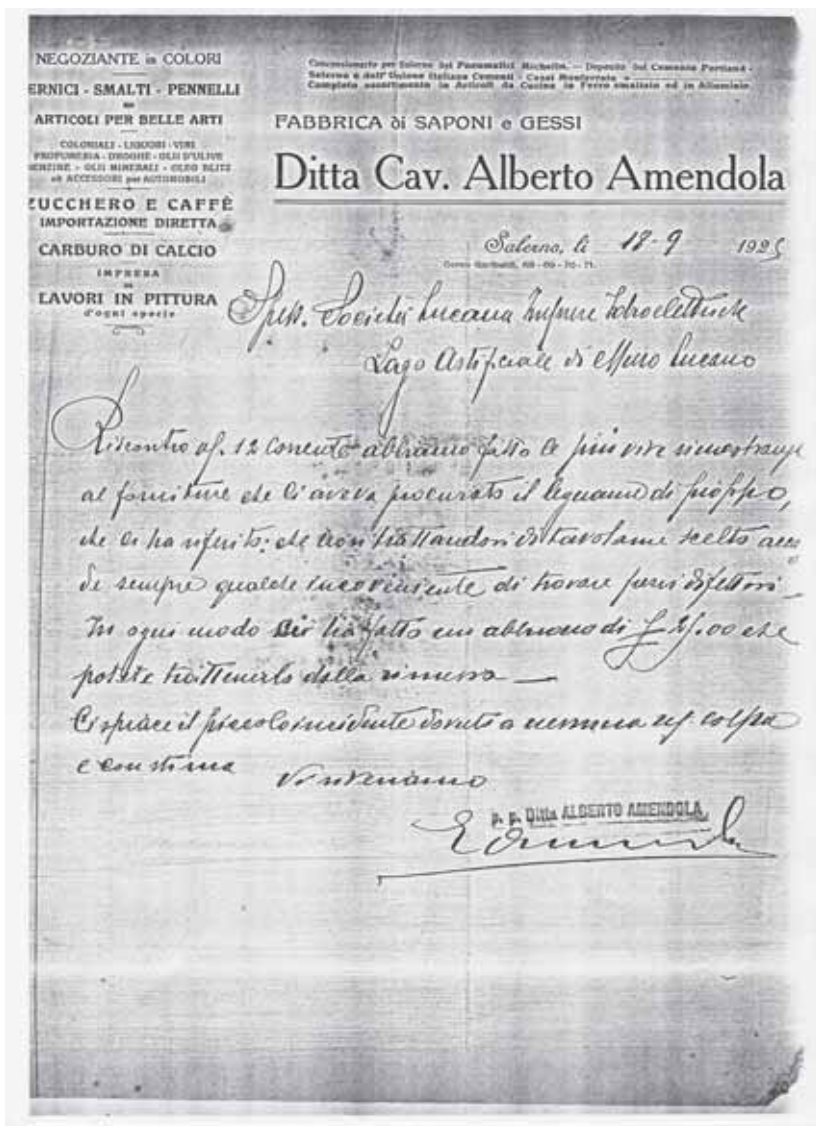 NEGOZIANTE in COLORI
ERNICI - SMALTI - PENNELLI
ED
ARTICOLI PER BELLE ARTI
COLONIALI - LIQUORI - VINI
PROFUMERIA - DROGHE - OLII D'ULIVE
BENZINE - OLII MINERALI - OLEO BLITZ
ed ACCESSORI per AUTOMOBILI
ZUCCHERO E CAFFÈ
IMPORTAZIONE DIRETTA
CARBURO DI CALCIO
IMPRESA
DI
LAVORI IN PITTURA
d'ogni specie
Concessionario per Salerno dei Pneumatici Michelin. — Deposito del Cemento Portland -
Salerno e dell'Unione Italiana Cementi - Casal Monferrato
Completo assortimento in Articoli da Cucina in Ferro smaltato ed in Alluminio.
FABBRICA di SAPONI e GESSI
Ditta Cav. Alberto Amendola
Salerno, li 18-9 1925
Corso Garibaldi, 68-69-70-71.
Spett. Società Lucana Imprese Idroelettriche
Lago Artificiale di Muro Lucano
Riscontro 12 Corrente abbiamo fatto le più vive rimostranze
al fornitore che ci aveva procurato il legname di pioppo,
che ci ha riferito: che non trattandosi di tavolame scelto acca
de sempre qualche incoveniente di trovare pezzi difettosi
In ogni modo ha fatto un abbuono di £ 25.00 che
potete trattenerlo dalla rimessa —
Ci spiace il piccolo incidente dovuto a nessuna colpa
e con stima
Vi riveriamo
p. p. Ditta ALBERTO AMENDOLA